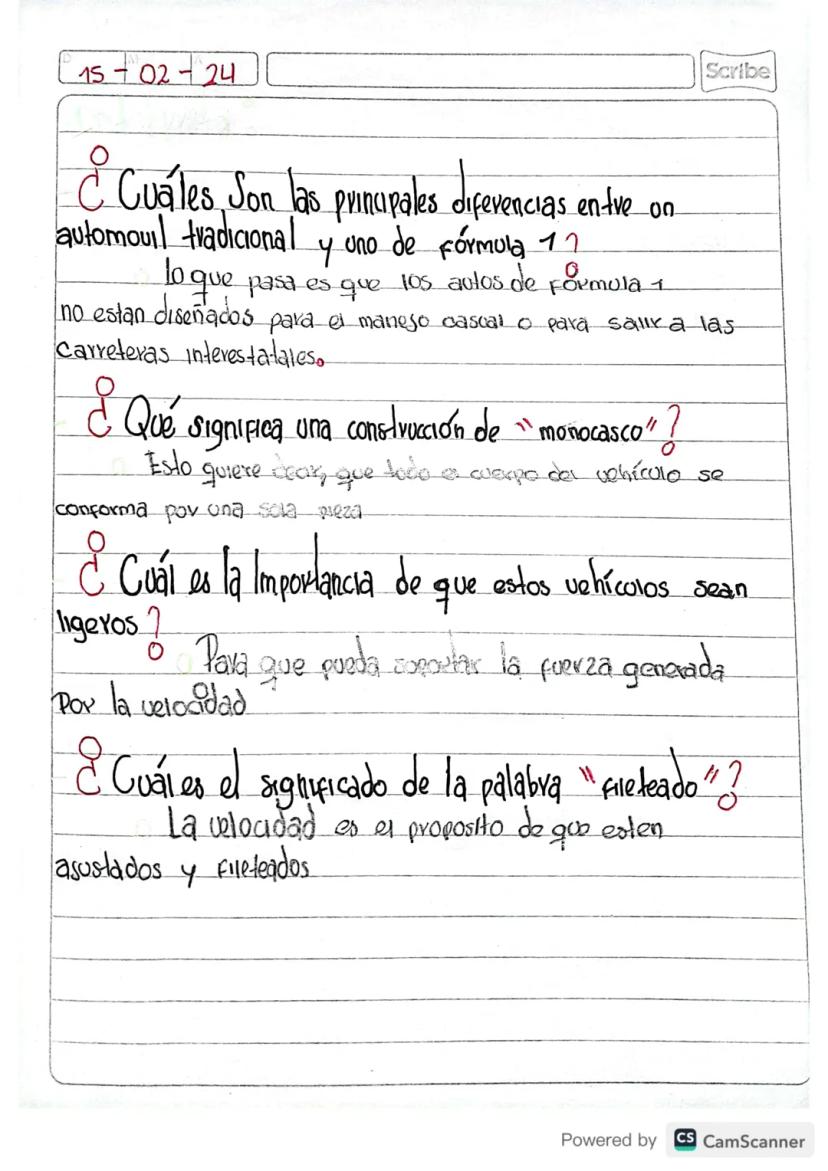 15-02-24
Scribe
¿Cuáles Son las principales diferencias entre un
automouil tradicional y uno de fórmula 1?
lo que pasa es que los autos de formula 1
no estan diseñados para el manejo casual o para salir a las
carreteras interestatales.
¿Qué significa una construcción de "monocasco"?
Esto quiere decir, que todo el cuerpo del vehículo se
conforma por una sola pieza
¿Cuál es la Importancia de que estos vehículos sean
ligeros?
Para que pueda soportar la fuerza generada
Por la velocidad
¿Cuál es el significado de la palabra "fileteado"?
La velocidad es el proposito de que esten
asustados y fileteados
Powered by CS CamScanner